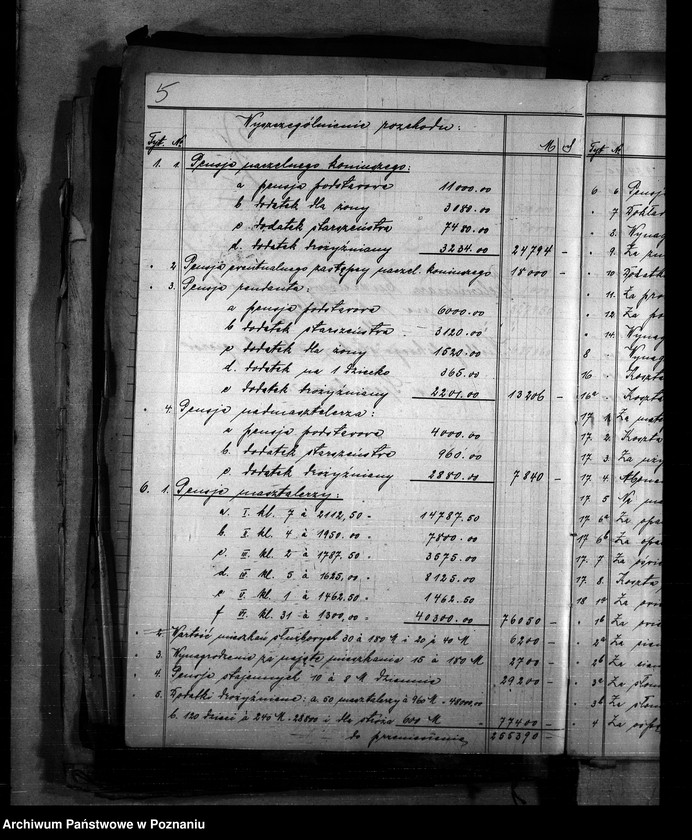 5
Wyszczególnienie rozchodu:
Tyt. Nr. M
1. 1. Pensja naczelnego koniuszego:
a pensja podstawowa 11000.00
b dodatek dla żony 3080.00
c dodatek starszeństwa 7480.00
d. dodatek drożyźniany 3234.00 24794 —
" 2 Pensja ewentualnego zastępcy naczel. koniuszego 15000 —
" 3. Pensja rendanta:
a pensja podstawowa 6000.00
b dodatek starszeństwa 3120.00
c dodatek dla żony 1520.00
d. dodatek na 1 dziecko 365.00
e dodatek drożyźniany 2201.00 13206 —
" 4. Pensja nadmasztalerza:
a pensja podstawowa 4000.00
b. dodatek starszeństwa 960.00
c. dodatek drożyźniany 2880.00 7840 —
6. 1. Pensja masztalerzy:
a. I. kl. 7 à 2112,50 " 14787.50
b. II. kl. 4 à 1950.00 " 7800.00
c. III. kl. 2 à 1787.50 " 3575.00
d. IV. kl. 5 à 1625.00 " 8125.00
e V. kl. 1 à 1462.50 " 1462.50
f VI. kl. 31 à 1300.00 " 40300.00 76050 —
" 2. Wartość mieszkań służbowych 30 à 180 M i 20 à 40 M 6200 —
" 3. Wynagrodzenie za najęte mieszkania 15 à 180 M 2700 —
" 4. Pensja stajennych 10 à 8 M dziennie 29200 —
" 5. Dodatki drożyźniane: a. 50 masztalerzy à 960 M = 48000.00
b. 120 dzieci à 240 M = 28800 i dla stróża 600 M 77400 —
do przeniesienia 255390 —
Tyt. Nr.
6 6 Pensja
" 7
" 8. Wynag
" 9. Za
" 10 Dodatk
" 11. Za
" 12. Za
" 14. Wynag
8 Wynag
16 Koszta
16a Koszta
17. 1. Za
17. 2. Koszta
17. 3. Za
17. 4. Abone
17. 5 Na
17. 6a Za opa
17. 6b Za opa
17. 7 Za
17. 8. Koszta
18 1a Za
" 1b Za
" 2a Za
" 2b Za
" 3a Za słom
" 3b Za słom
" 4 Za
Archiwum Państwowe w Poznaniu